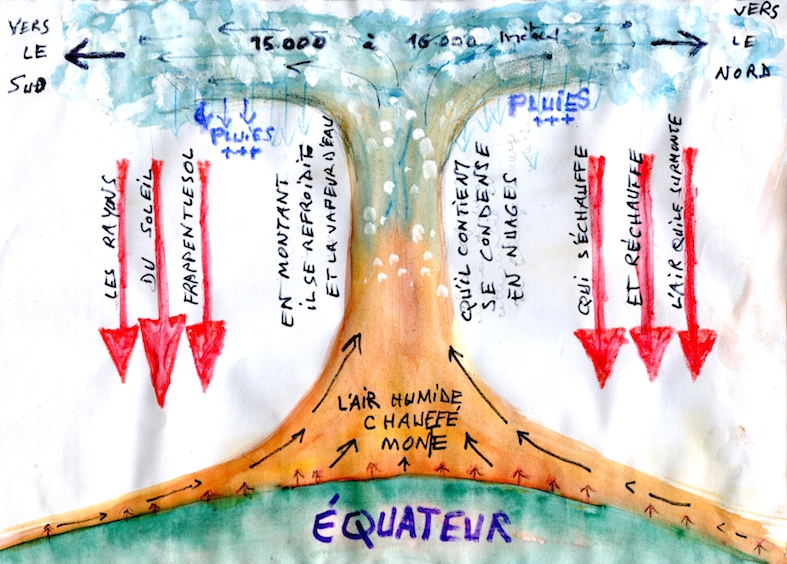 VERS
LE
SUD
15.000 à 16.000 mètres
VERS
LE
NORD
PLUIES
+++
PLUIES
+++
LES RAYONS
DU SOLEIL
FRAPPENT LE SOL
EN MONTANT
IL SE REFROIDIT
ET LA VAPEUR D'EAU
QU'IL CONTIENT
SE CONDENSE
EN NUAGES
QUI S'ÉCHAUFFE
ET RÉCHAUFFE
L'AIR QUI LE SURMONTE
L'AIR HUMIDE
CHAUFFÉ
MONTE
ÉQUATEUR